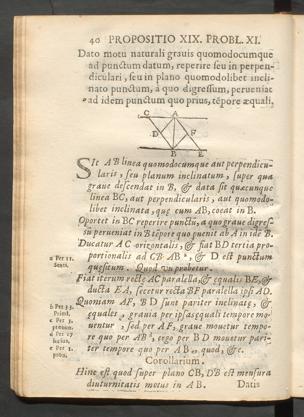 40 PROPOSITIO XIX. PROBL. XI.
Dato motu naturali grauis quomodocumque
ad punctum datum, reperire seu in perpen-
diculari, seu in plano quomodolibet incli-
nato punctum, à quo digressum, perueniat
ad idem punctum quo prius, tẽpore æquali.
C A
D F
B E
Sit AB linea quomodocumque aut perpendicu-
laris, seu planum inclinatum, super qua
graue descendat in B, & data sit quæcunque
linea BC, aut perpendicularis, aut quomodo-
libet inclinata, quæ cum AB, coeat in B.
Oportet in BC reperire punctu, a quo graue digres-
su perueniat in B tẽpore quo puenit ab A in idẽ B.
Ducatur AC orizontalis, & fiat BD tertia pro-
a Per 11. portionalis ad CB AB a, & D est punctum
Secũ. quesitum. Quod vt probetur.
Fiat iterum recte AC parallela, & equalis BE, &
ducta EA, secetur recta BF parallela ipsi AD.
b Per 33. Quoniam AF, BD sunt pariter inclinate, &
Primi. equales, grauia per ipsas equali tempore mo-
uentur, sed per AF, graue mouetur tempo-
re quo per AB, ergo per BD mouetur pari-
e Per 1. ter tempore quo per AB, quod, &c.
Corollarium.
Hinc est quod super plano CB, DB est mensura
diuturnitatis motus in AB. Datis